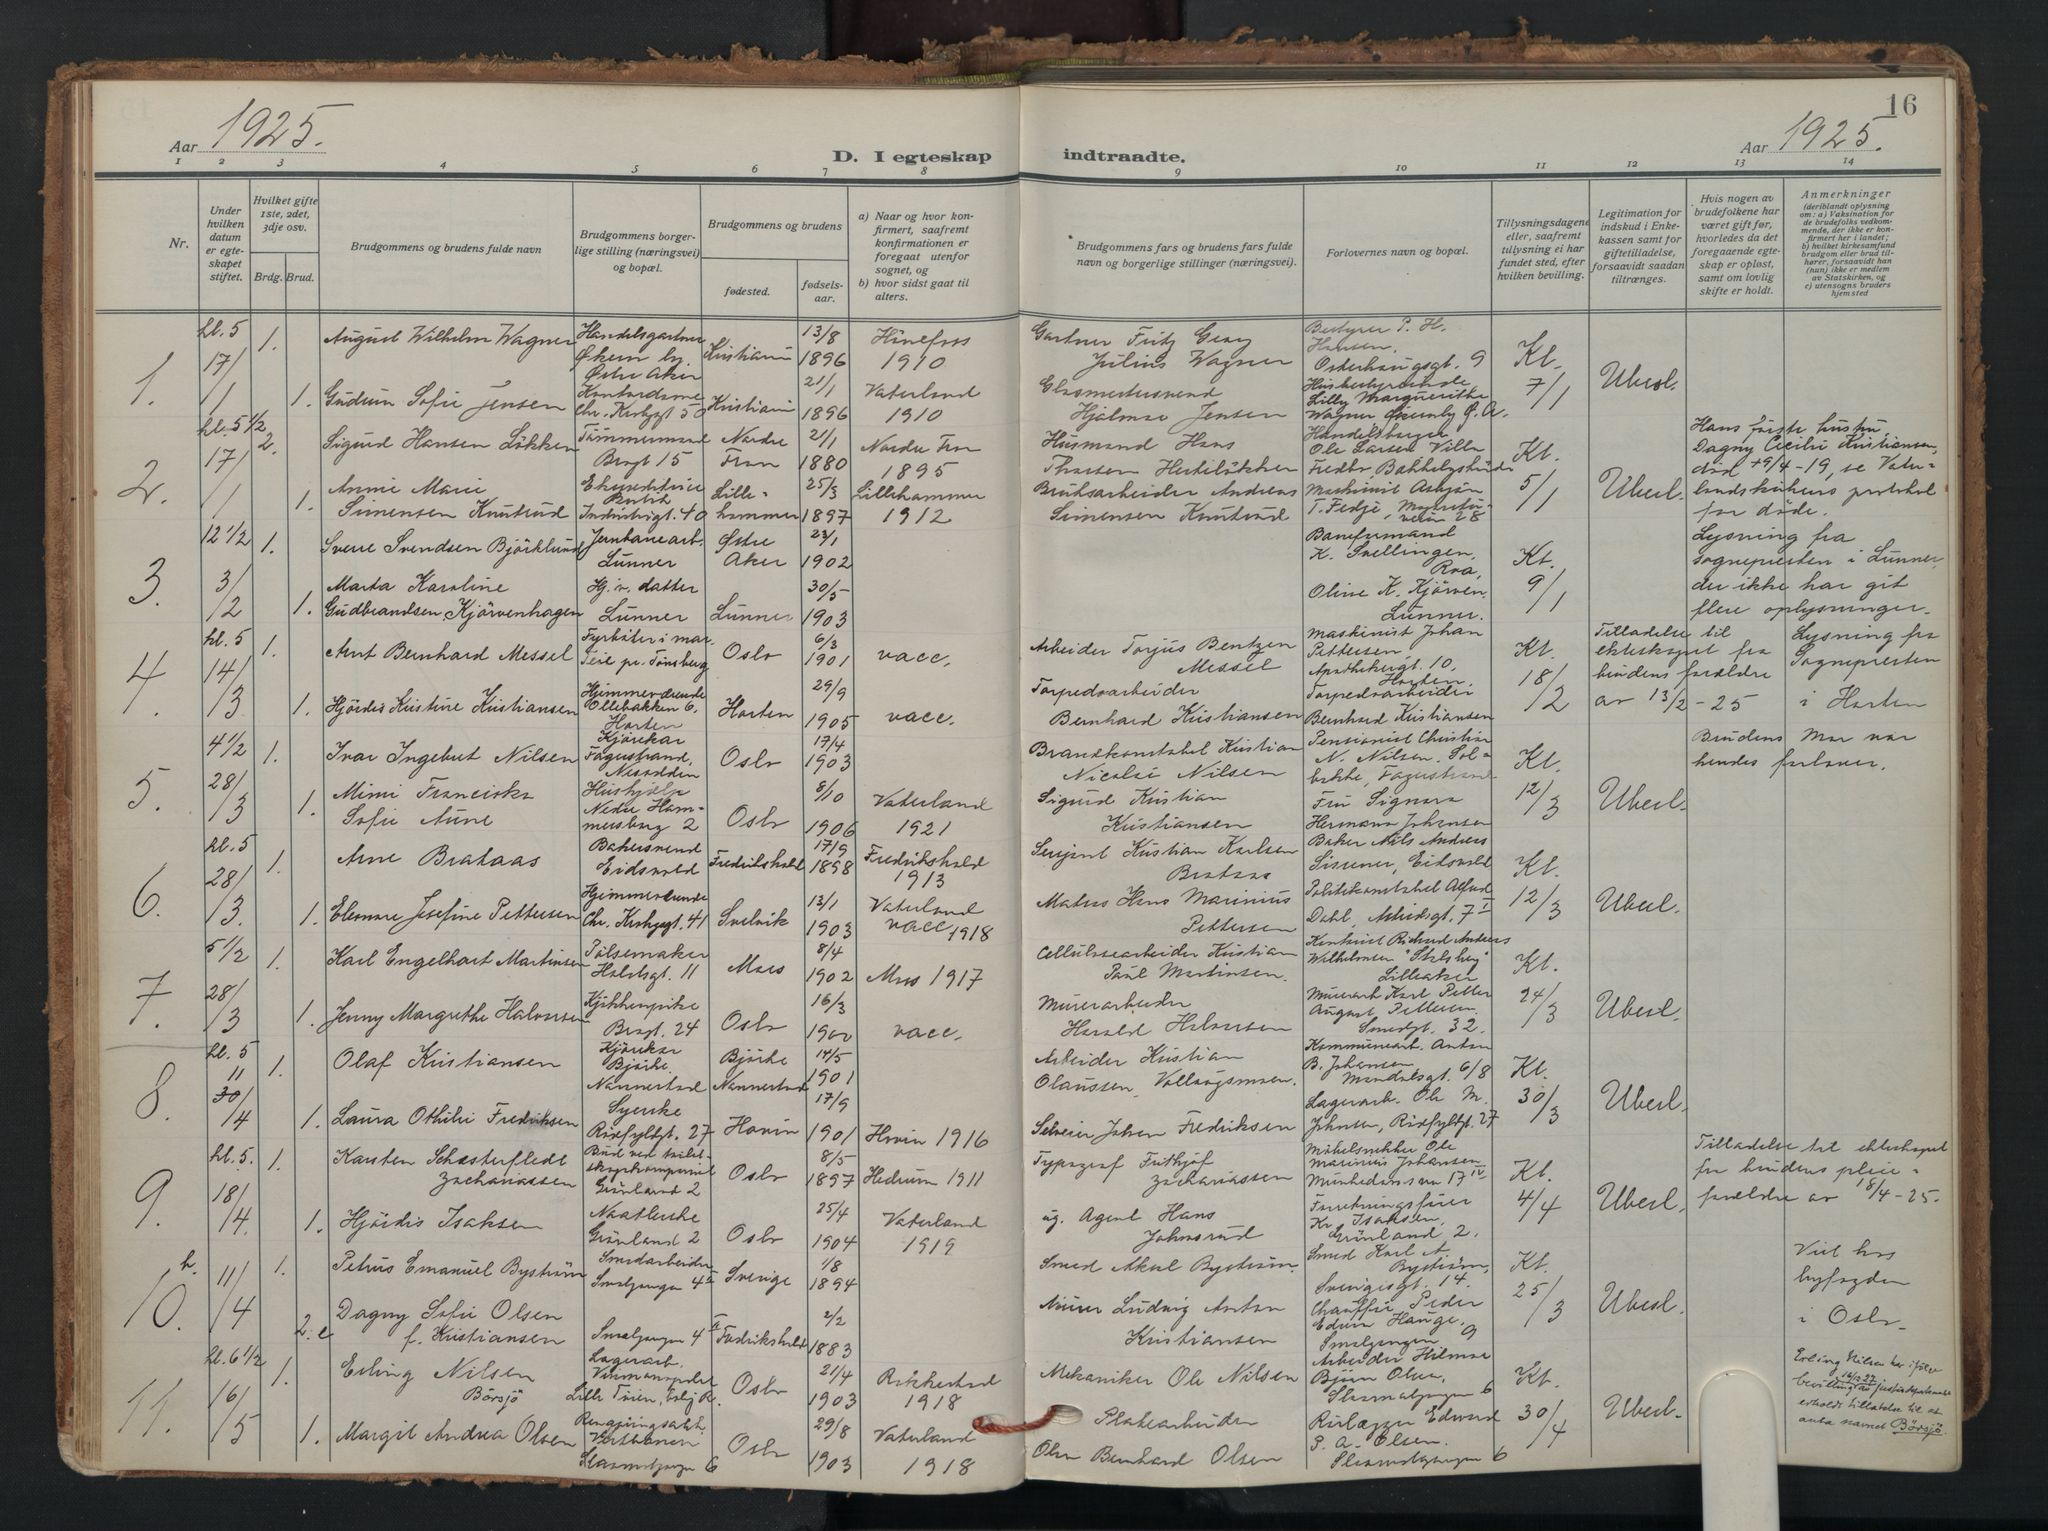 16
Aar 1925.
D. I egteskap
indtraadte.
Aar 1925.
1 2 3 4 5 6 7 8 9 10 11 12 13 14
Nr.
Under hvilken datum er egteskapet stiftet.
Hvilket gifte 1ste, 2det, 3dje osv.
Brdg. Brud.
Brudgommens og brudens fulde navn
Brudgommens borgerlige stilling (næringsvei) og bopæl.
Brudgommens og brudens
fødested.
fødselsaar.
a) Naar og hvor konfirmert, saafremt konfirmationen er foregaat utenfor sognet, og
b) hvor sidst gaat til alters.
Brudgommens fars og brudens fars fulde navn og borgerlige stillinger (næringsvei).
Forlovernes navn og bopæl.
Tillysningsdagene eller, saafremt tillysning ei har fundet sted, efter hvilken bevilling.
Legitimation for indskud i Enkekassen samt for giftetilladelse, forsaavidt saadan tiltrænges.
Hvis nogen av brudefolkene har været gift før, hvorledes da det foregaaende egteskap er opløst, samt om lovlig skifte er holdt.
Anmerkninger
(deriblandt oplysning om: a) Vaksination for de brudefolks vedkommende, der ikke er konfirmert her i landet; b) hvilket kirkesamfund brudgom eller brud tilhører, forsaavidt han (hun) ikke er medlem av Statskirken, og c) utensogns bruders hjemsted
1. kl. 5 17/1
1. August Wilhelm Wagner Handelsgartner Økern by. Østre Aker Kristiania 13/8 1896 Hönefoss 1910 Gartner Fritz Georg Julius Wagner Bestyrer P. H. Hansen, Osterhausgt. 9 Kl. 7/1 Uberl.
1. Gudrun Sofie Jensen Kontordame Chr. Krohgsgt 50 Kristiania 21/1 1896 Vaterland 1910 Glasmestersvend Hjalmar Jensen Husbestyrerinde Lilly Marguerithe Wagner Økernby Ø. A.
2. kl. 5 1/2 17/1
2. Sigurd Hansen Løkken Tømmermand Brugt 15 Nordre Fron 21/1 1880 Nordre Fron 1895 Husmand Hans Thorsen Ole Larsen Kl. 5/1 Uberl. Hans første hustru, Dagny Cecilie Kristiansen, død 19/4-19, se Vaterlandskirkens protokol for døde.
1. Annie Marie Simensen Knutsrud Industrigt. 40 Lillehammer 25/3 1897 Lillehammer 1912 Bruksarbeider Andreas Simensen Knutsrud Maskinist Asbjørn T. Fedje,
3. 12 1/2 3/2
1. Sverre Svendsen Björklund Jernbanearb. Lunner Østre Aker 23/1 1902 Baneformand K. Svellingen, Roa, Kl. 9/1 Lysning fra sognepresten i Lunner, der ikke har git flere oplysninger.
1. Marta Karoline Gudbrandsen Kjörvenhagen Hj. v. datter Lunner Lunner 30/5 1903 Oline K. Kjörven, Lunner.
4. kl. 5 14/3
1. Arnt Bernhard Messel Fyrbøter i mar. Teie pr. Tønsberg Oslo 6/3 1901 vacc. Arbeider Torjus Bentzen Messel Maskinist Johan Pettersen, Apothekergt. 10, Horten. Kl. 18/2 Tilladelse til ekteskapet fra brudens forældre av 13/2-25 Lysning fra Sognepresten i Horten
1. Hjördis Kristine Kristiansen Hjemmeværende Ollebakken 6, Horten Horten 29/9 1905 vacc. Torpedoarbeider Bernhard Kristiansen Torpedoarbeider Bernhard Kristiansen
5. 4 1/2 28/3
1. Ivar Ingebret Nilsen Kjørekar Fagerstrand, Nesodden Oslo 17/4 1903 Brandkonstabel Kristian Nicolai Nilsen Pensionist Christian N. Nilsen. Solbakke, Fagerstrand Kl. 12/3 Uberl. Brudens mor var hendes forlover.
1. Mimi Franciska Sofie Aune Hushjelp Nedre Hammersborg 2 Oslo 8/10 1906 Vaterland 1921 Sigurd Kristian Kristiansen Fru Signora Hermana Johansen
6. kl. 5 28/3
1. Arne Brataas Bakersvend Eidsvold Fredrikshald 17/9 1898 Fredrikshald 1913 Serjant Kristian Karlsen Brataas Baker Nils Andreas Eidsvold Kl. 12/3 Uberl.
1. Eleonore Josefine Pettersen Hjemmeværende Chr. Krohgsgt. 41 Svelvik 13/1 1903 Vaterland vacc 1918 Matros Hans Marinius Pettersen Politikonstabel Alfred Dahl, Arbeidsgt. 7 I
7. 5 1/2 28/3
1. Karl Engelhart Martinsen Pølsemaker Holstsgt. 11 Moss 8/4 1902 Moss 1917 Cellulosearbeider Kristian Paul Martinsen Kontorist Richard Anders Wilhelmsen Lilleaker Kl. 24/3 Uberl.
1. Jenny Margrethe Halvorsen Kjøkkenpike Brugt. 24 Oslo 16/3 1900 vacc. Murerarbeider Harald Halvorsen Murerarb. Karl Petter August Pettersen Smedgt. 32.
8. kl. 5 11 30/4
1. Olaf Kristiansen Kjørekar Bjørke, Nannestad Bjørke Nannestad 14/5 1901 Arbeider Kristian Olaussen Kommunearb. Anton B. Johansen Mandalsgt. 6/8 Kl. 30/3 Uberl.
1. Laura Othilie Fredriksen Syerske Ridfylkgt. 27 Hovin 17/9 1901 Hovin 1916 Selveier Johan Fredriksen Lagerarb. Ole M. Johnsen, Ridfylkgt. 27
9. kl. 5. 18/4
1. Karsten Zachariassen Bud ved Grönland 2 Oslo 8/5 1897 Hedrum 1911 Typograf Frithjof Zachariassen Møbelsnekker Ole Marinius Johansen 17 IV Kl. 4/4 Uberl. Tilladelse til ekteskapet fra brudens pleieforældre av 18/4-25.
1. Hjördis Isaksen Grönland 2 Oslo 25/4 1904 Vaterland 1919 ug. Agent Hans Johnsrud Forretningsfører Kr. Isaksen, Grönland 2.
10. k. 11/4
1. Petrus Emanuel Byström Smedarbeider Smalgangen 4 II Sverige 1/8 1894 Smed Axel Byström Smed Karl A. Byström, Sverigesgt. 14. Kl. 25/3 Uberl. Viet hos byfogden i Oslo
2. e Dagny Sofie Olsen f. Kristiansen Smalgangen 4 II Fredrikshald 2/2 1883 Murer Ludvig Anton Kristiansen Chauffør Peder Edvin Hauge, Smalgangen 9
11. kl. 6 1/2 16/5
1. Erling Nilsen Börsjö Lagerarb. Vinmonopolet Lille Tøien, Oslo 21/4 1903 Rakkestad 1918 Mekaniker Ole Nilsen Arbeider Hilmar Bjørn Olsen, Slammotgangen 6 Kl. 30/4 Uberl. Erling Nilsen har ifølge bevilling av justisdepartementet 16/2 27 erholdt tilladelse til at anta navnet Börsjö.
1. Margit Andrea Olsen Rengjøringsarb. Oslo 29/8 1903 Vaterland 1918 Platearbeider Olav Bernhard Olsen Rørlægger Edvard P. A. Olsen.